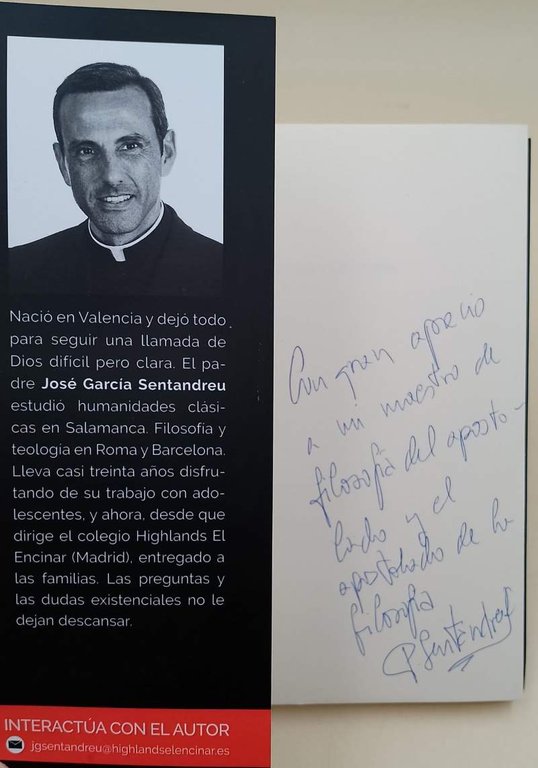 Nació en Valencia y dejó todo
para seguir una llamada de
Dios difícil pero clara. El pa-
dre José García Sentandreu
estudió humanidades clási-
cas en Salamanca. Filosofía y
teología en Roma y Barcelona.
Lleva casi treinta años disfru-
tando de su trabajo con ado-
lescentes, y ahora, desde que
dirige el colegio Highlands El
Encinar (Madrid), entregado a
las familias. Las preguntas y
las dudas existenciales no le
dejan descansar.
INTERACTÚA CON EL AUTOR
jgsentandreu@highlandselencinar.es
Con gran aprecio
a mi maestro de
filosofía del aposto-
lado y el
apostolado de la
filosofía
P Sentandreu